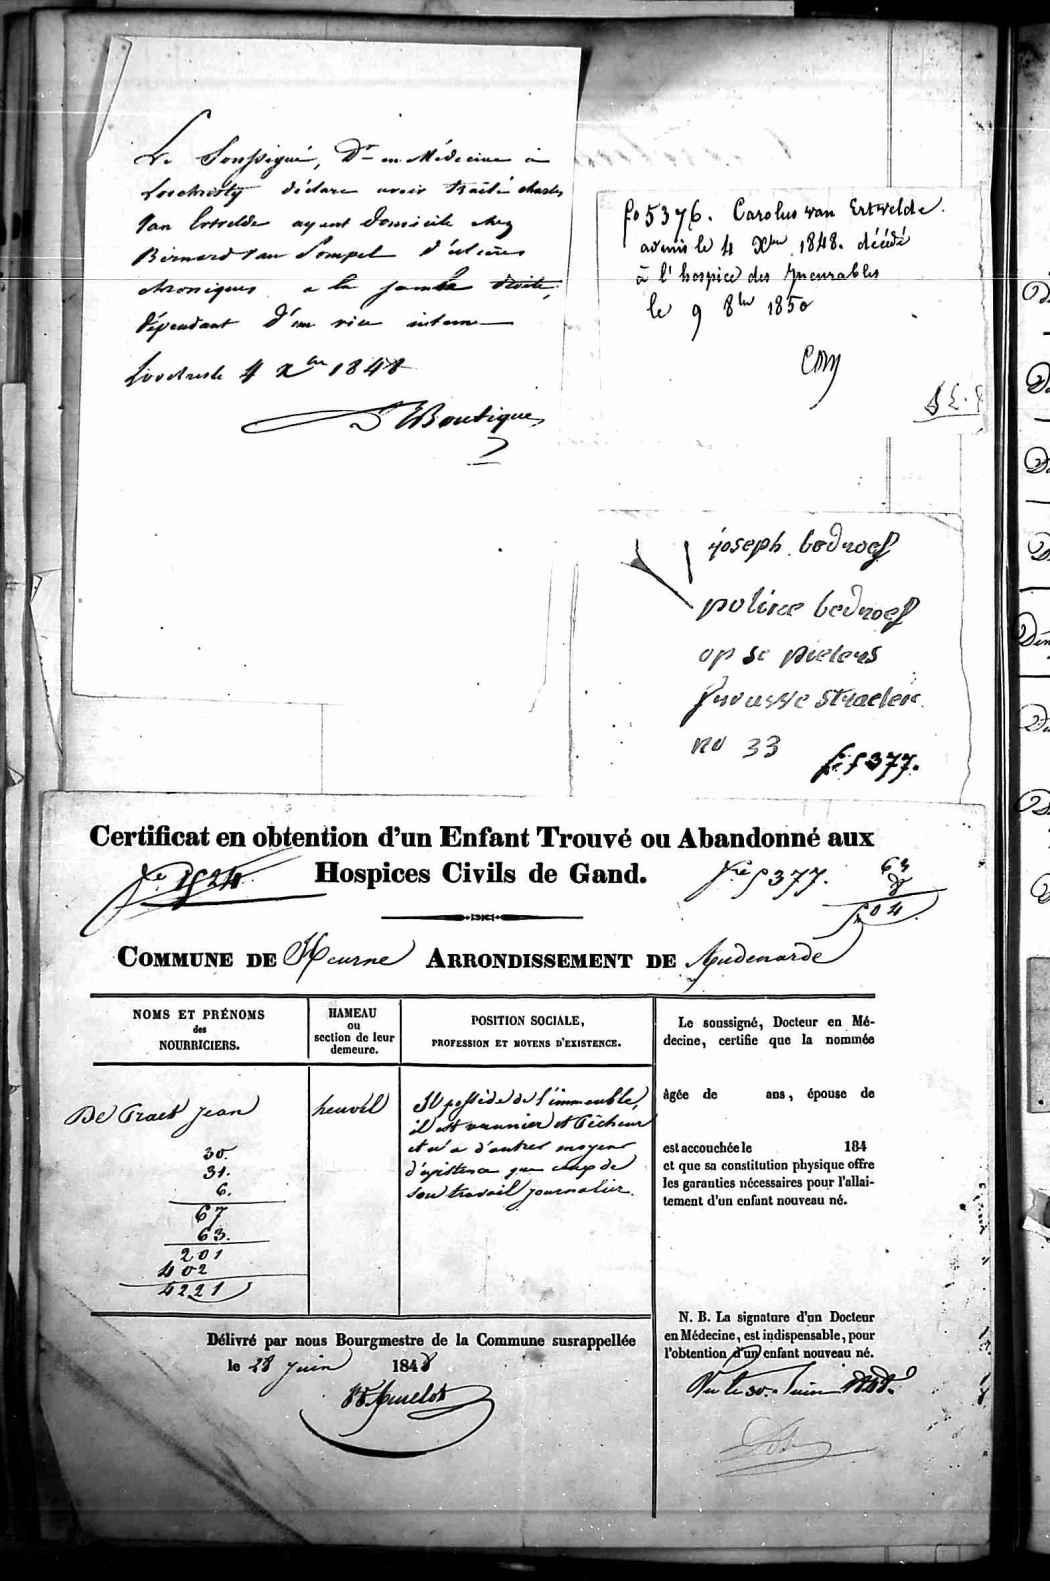 Le Soussigné, Dr en Médecine à
Loochristy déclare avoir traité charles
Van Ertvelde ayant domicile chez
Bernard Van Pompel d'ulcères
chroniques a la jambe droite,
dépendant d'un vice interne
Loochristi 4 Xbre 1848
Boutique
fo 5376. Carolus van Ertvelde.
admis le 4 Xbre 1848. décédé
à l'hospice des Incurables
le 9 8bre 1850
joseph bedroef
poline bedroef
op st pieters
straeten
no 33
fo 5377.
Certificat en obtention d'un Enfant Trouvé ou Abandonné aux
Hospices Civils de Gand.
fo 5377.
63
8
504
COMMUNE DE Heurne ARRONDISSEMENT DE Audenarde
NOMS ET PRÉNOMS
des
NOURRICIERS.
HAMEAU
ou
section de leur
demeure.
POSITION SOCIALE,
PROFESSION ET MOYENS D'EXISTENCE.
De Praet Jean
heuvel
Il possède de l'immeuble,
il est vannier et Pêcheur
et n'a d'autres moyens
d'existence que ceux de
son travail journalier.
30.
31.
6.
67
63.
201
402
4221
Le soussigné, Docteur en Mé-
decine, certifie que la nommée
âgée de ans, épouse de
est accouchée le 184
et que sa constitution physique offre
les garanties nécessaires pour l'allai-
tement d'un enfant nouveau né.
N. B. La signature d'un Docteur
en Médecine, est indispensable, pour
l'obtention d'un enfant nouveau né.
Vu le 30 Juin 1848.
Délivré par nous Bourgmestre de la Commune susrappellée
le 28 juin 1848